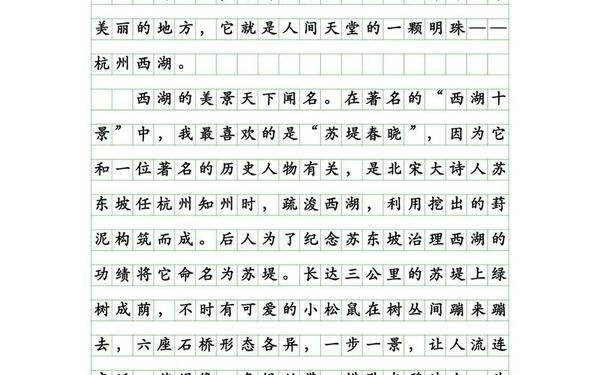 美丽的地方，它就是人间天堂的一颗明珠——
杭州西湖。
西湖的美景天下闻名。在著名的“西湖十
景”中，我最喜欢的是“苏堤春晓”，因为它
和一位著名的历史人物有关，是北宋大诗人苏
东坡任杭州知州时，疏浚西湖，利用挖出的葑
泥构筑而成。后人为了纪念苏东坡治理西湖的
功绩将它命名为苏堤。长达三公里的苏堤上绿
树成荫，不时有可爱的小松鼠在树丛间蹦来蹦
去，六座石桥形态各异，一步一景，让人流连